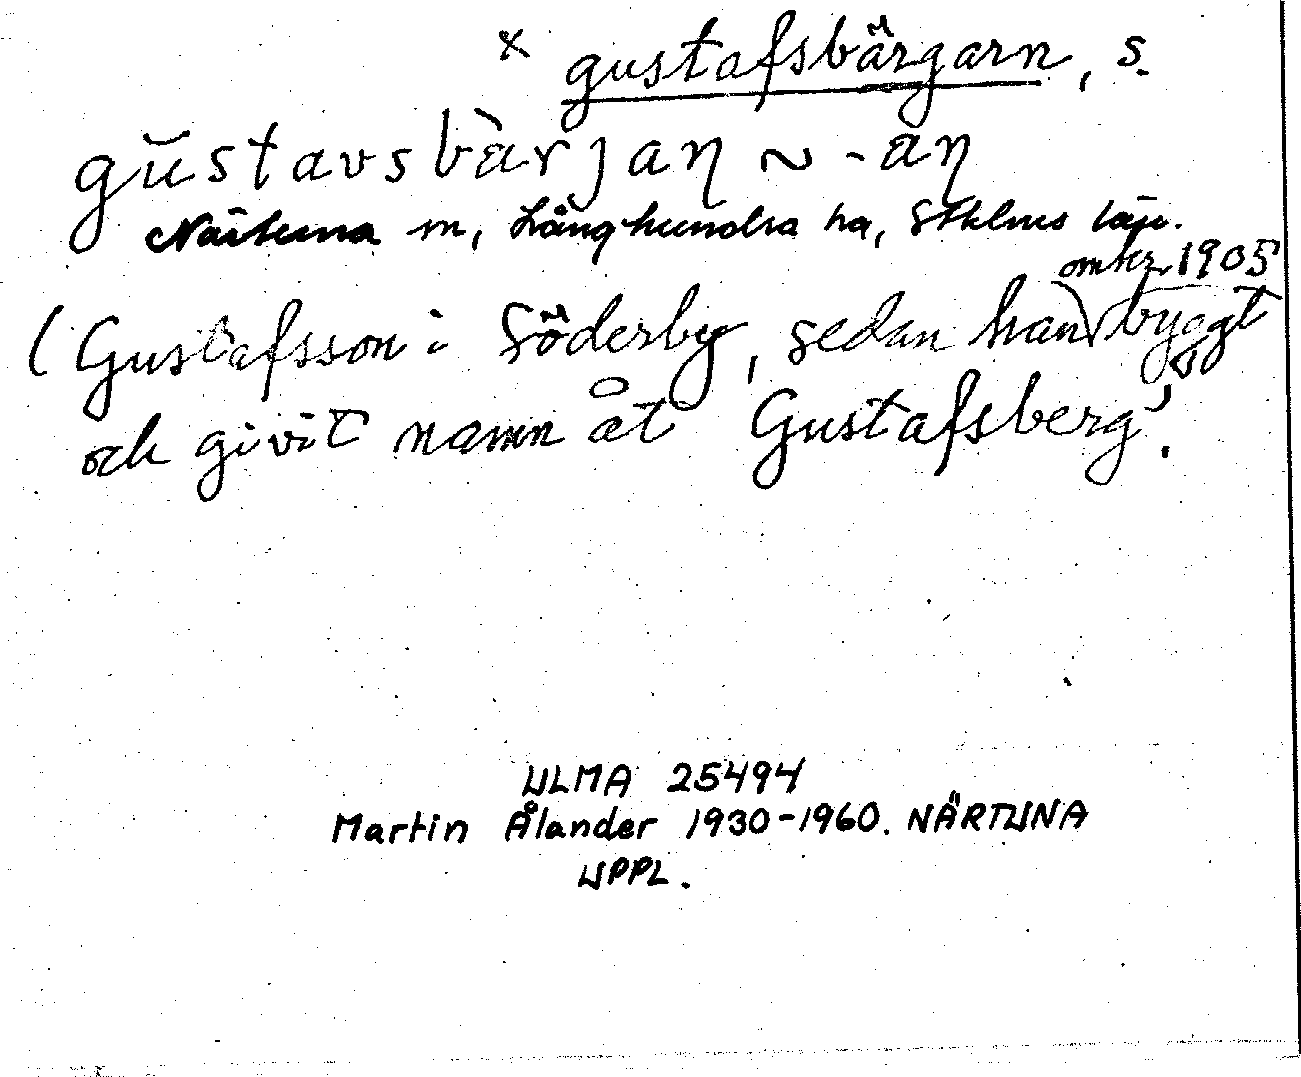 x gustafsbärgarn, s.
gŭstavsbàrjaŋ ~ -aŋ
Närtuna sn, Långhundra hd, Sthlms län.
omkr. 1905
(Gustafsson i Söderby, sedan han byggt
och givit namn åt Gustafsberg).
ULMA 25494
Martin Ålander 1930-1960. NÄRTUNA
UPPL.